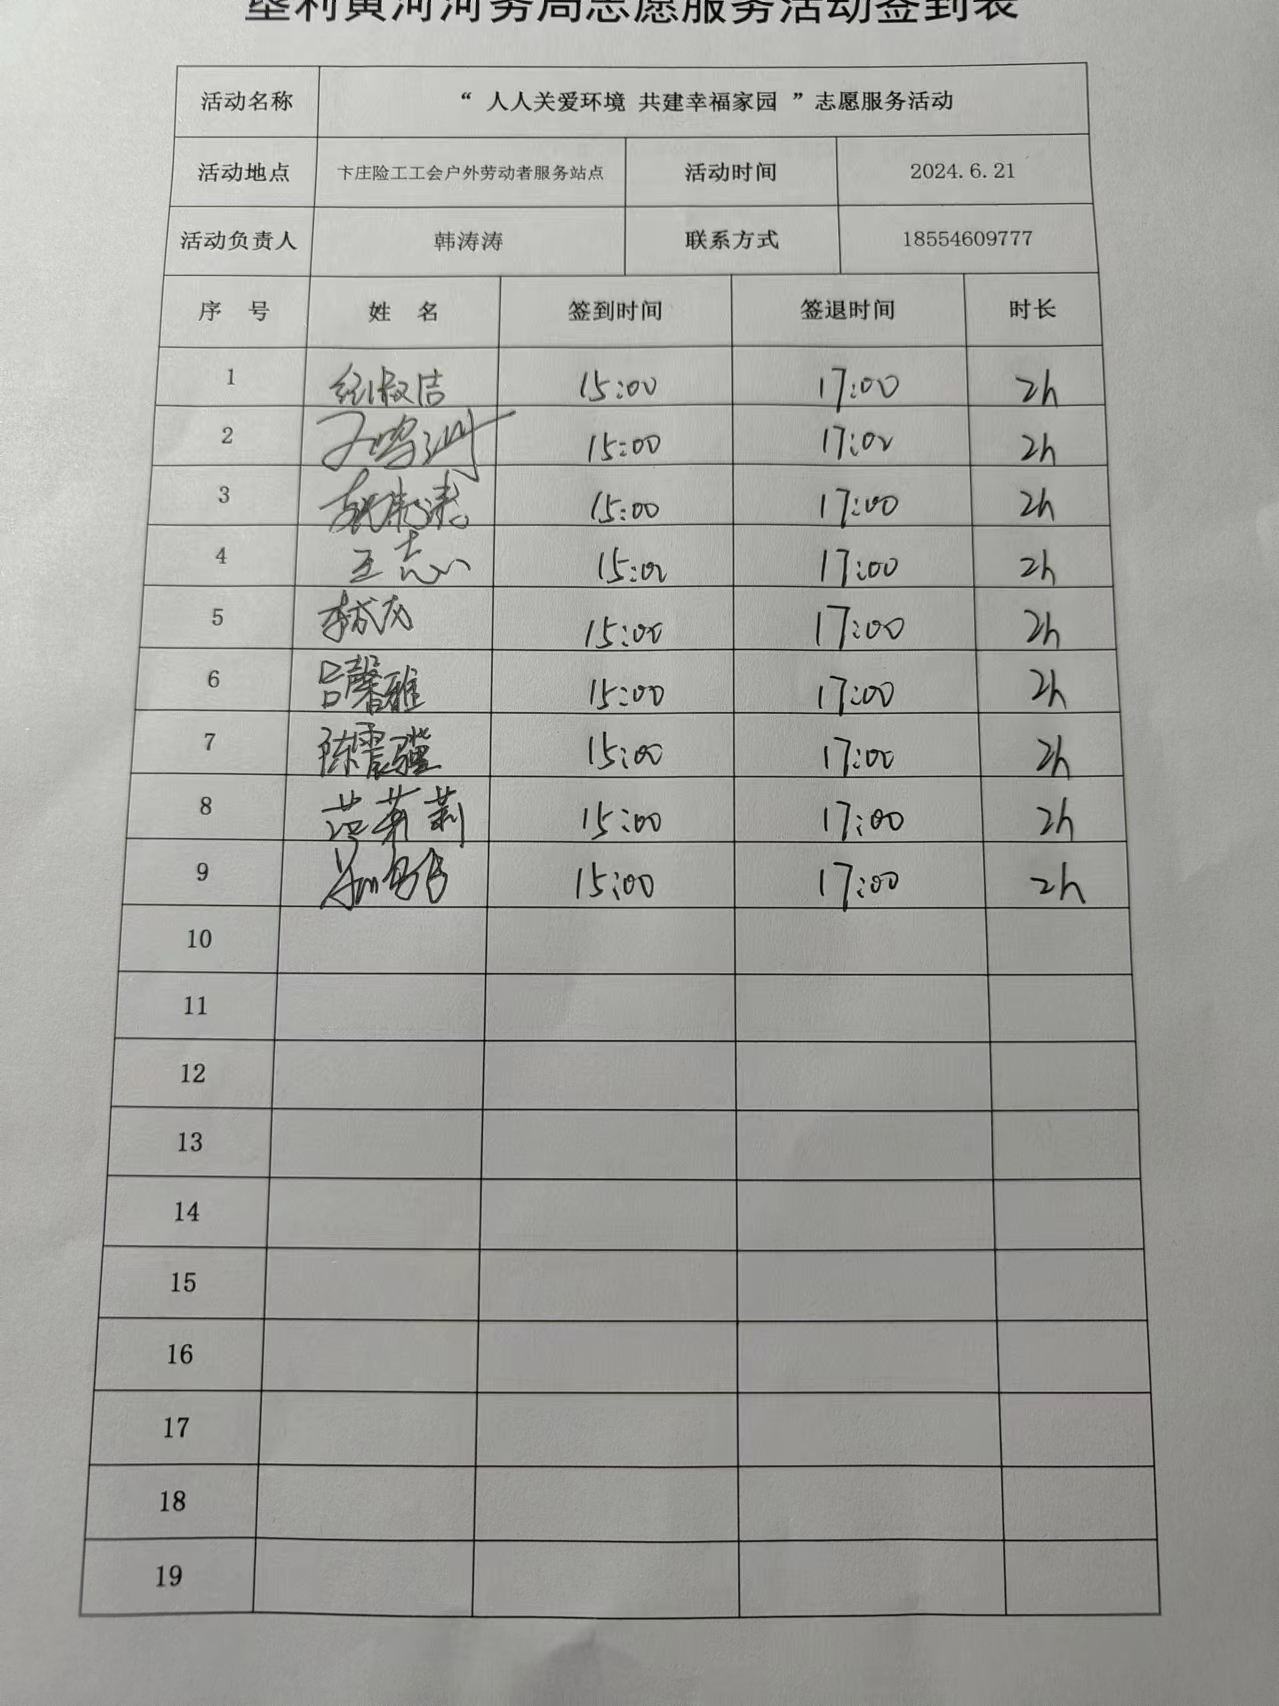 垦利黄河河务局志愿服务活动签到表
活动名称 “ 人人关爱环境 共建幸福家园 ”志愿服务活动
活动地点 卞庄险工工会户外劳动者服务站点 活动时间 2024.6.21
活动负责人 韩涛涛 联系方式 18554609777
序 号 姓 名 签到时间 签退时间 时长
1 15:00 17:00 2h
2 15:00 17:00 2h
3 15:00 17:00 2h
4 王志 15:00 17:00 2h
5 15:00 17:00 2h
6 吕馨雅 15:00 17:00 2h
7 陈震骥 15:00 17:00 2h
8 范莉莉 15:00 17:00 2h
9 15:00 17:00 2h
10
11
12
13
14
15
16
17
18
19